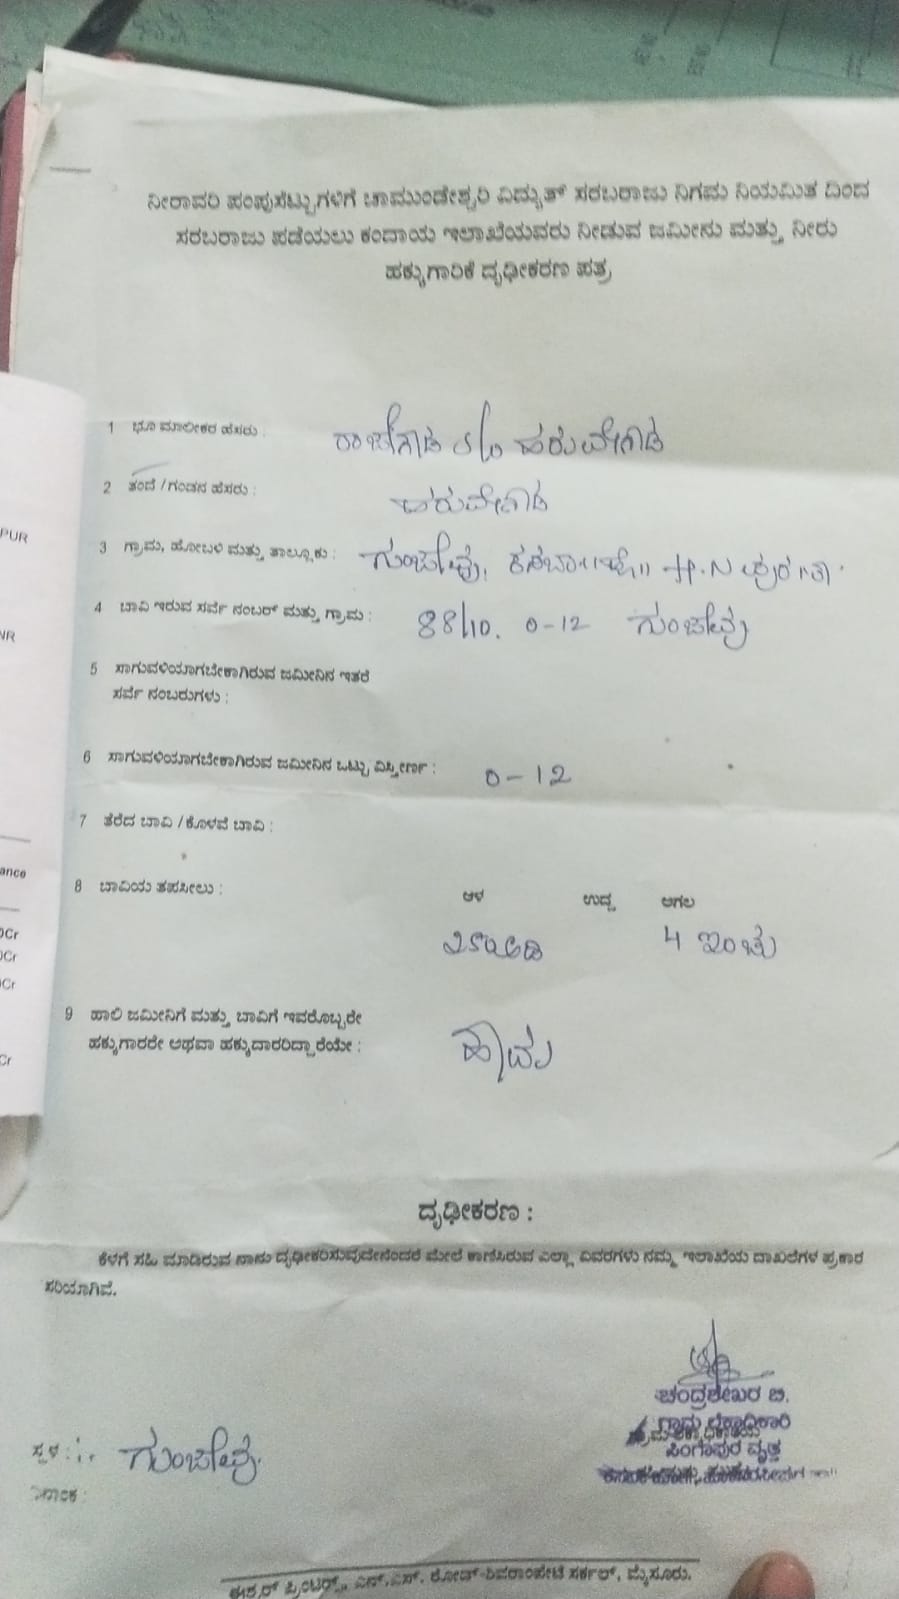 ನೀರಾವರಿ ಪಂಪುಸೆಟ್ಟುಗಳಿಗೆ ಚಾಮುಂಡೇಶ್ವರಿ ವಿದ್ಯುತ್ ಸರಬರಾಜು ನಿಗಮ ನಿಯಮಿತ ದಿಂದ
ಸರಬರಾಜು ಪಡೆಯಲು ಕಂದಾಯ ಇಲಾಖೆಯವರು ನೀಡುವ ಜಮೀನು ಮತ್ತು ನೀರು
ಹಕ್ಕುಗಾರಿಕೆ ದೃಢೀಕರಣ ಪತ್ರ
1 ಭೂ ಮಾಲೀಕರ ಹೆಸರು : ರಾಜೇಗೌಡ S/o ಹರುವೇಗೌಡ
2 ತಂದೆ / ಗಂಡನ ಹೆಸರು : ಹರುವೇಗೌಡ
3 ಗ್ರಾಮ, ಹೋಬಳಿ ಮತ್ತು ತಾಲ್ಲೂಕು : ಗುಂಜೇವು, ಕಸಬಾ ಹೋ॥ H.N ಪುರ ತಾ.
4 ಬಾವಿ ಇರುವ ಸರ್ವೆ ನಂಬರ್ ಮತ್ತು ಗ್ರಾಮ : 88/10. 0-12 ಗುಂಜೇವು
5 ಸಾಗುವಳಿಯಾಗಬೇಕಾಗಿರುವ ಜಮೀನಿನ ಇತರೆ
ಸರ್ವೆ ನಂಬರುಗಳು :
6 ಸಾಗುವಳಿಯಾಗಬೇಕಾಗಿರುವ ಜಮೀನಿನ ಒಟ್ಟು ವಿಸ್ತೀರ್ಣ : 0-12
7 ತೆರೆದ ಬಾವಿ / ಕೊಳವೆ ಬಾವಿ :
8 ಬಾವಿಯ ತಪಸೀಲು : ಆಳ ಉದ್ದ ಅಗಲ
4 ಇಂಚು
9 ಹಾಲಿ ಜಮೀನಿಗೆ ಮತ್ತು ಬಾವಿಗೆ ಇವರೊಬ್ಬರೇ
ಹಕ್ಕುಗಾರರೇ ಅಥವಾ ಹಕ್ಕುದಾರರಿದ್ದಾರೆಯೇ : ಹೌದು
ದೃಢೀಕರಣ :
ಕೆಳಗೆ ಸಹಿ ಮಾಡಿರುವ ನಾನು ದೃಢೀಕರಿಸುವುದೇನೆಂದರೆ ಮೇಲೆ ಕಾಣಿಸಿರುವ ಎಲ್ಲಾ ವಿವರಗಳು ನಮ್ಮ ಇಲಾಖೆಯ ದಾಖಲೆಗಳ ಪ್ರಕಾರ
ಸರಿಯಾಗಿವೆ.
ಚಂದ್ರಶೇಖರ ಬಿ.
ಗ್ರಾಮ ಲೆಕ್ಕಾಧಿಕಾರಿ
ಸಿಂಗಾಪುರ ವೃತ್ತ
ಸ್ಥಳ : ಗುಂಜೇವು.
ದಿನಾಂಕ :
ಈಶ್ವರ್ ಪ್ರಿಂಟರ್ಸ್, ಎನ್.ಎಸ್. ರೋಡ್-ಶಿವರಾಂಪೇಟೆ ಸರ್ಕಲ್, ಮೈಸೂರು.
PUR
ance
Cr
Cr
Cr
Cr